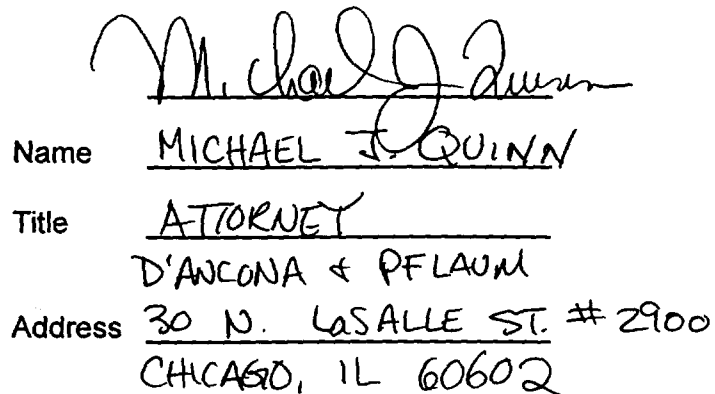 Michael J Quinn
Name MICHAEL J. QUINN
Title ATTORNEY
D'ANCONA & PFLAUM
Address 30 N. LaSALLE ST. # 2900
CHICAGO, IL 60602